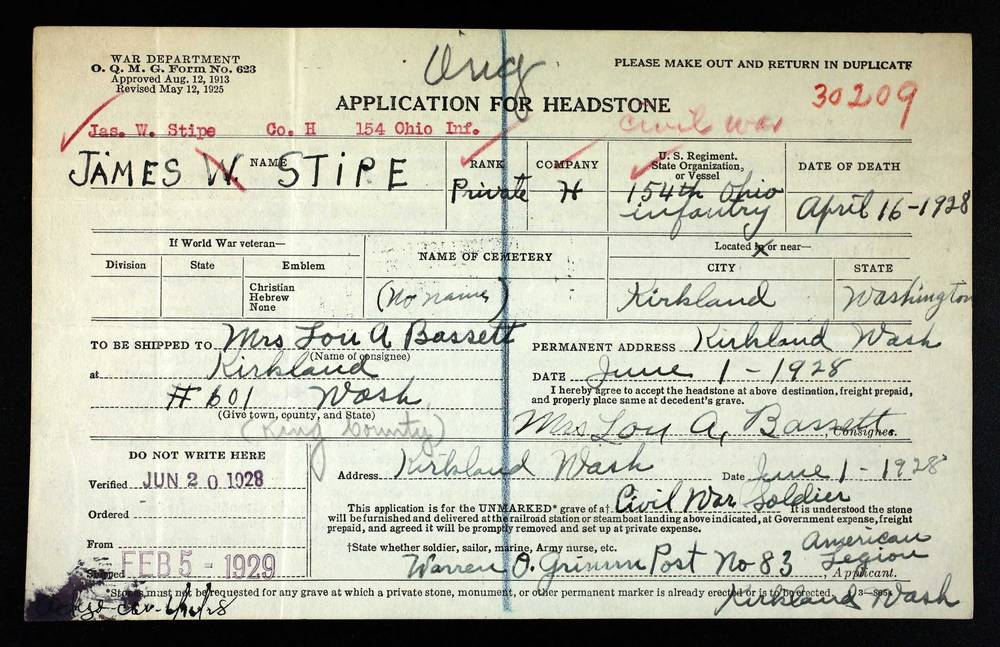 WAR DEPARTMENT
O. Q. M. G. Form No. 623
Approved Aug. 12, 1913
Revised May 12, 1925
Orig
PLEASE MAKE OUT AND RETURN IN DUPLICATE
30209
APPLICATION FOR HEADSTONE
Civil War
Jas. W. Stipe Co. H 154 Ohio Inf.
NAME
JAMES W. STIPE
RANK
Private
COMPANY
H
U. S. Regiment.
State Organization,
or Vessel
154th Ohio
infantry
DATE OF DEATH
April 16-1928
If World War veteran—
Division State Emblem
Christian
Hebrew
None
NAME OF CEMETERY
(No name)
Located in or near—
CITY STATE
Kirkland Washington
TO BE SHIPPED TO Mrs Lou A Bassett
(Name of consignee)
at Kirkland
#601 Wash
(Give town, county, and State)
(King County)
PERMANENT ADDRESS Kirkland Wash
DATE June 1-1928
I hereby agree to accept the headstone at above destination, freight prepaid,
and properly place same at decedent's grave.
Mrs Lou A, Bassett, Consignee.
DO NOT WRITE HERE
Verified JUN 20 1928
Ordered
From
Shipped FEB 5 - 1929
Address Kirkland Wash Date June 1-1928
This application is for the UNMARKED* grave of a† Civil War Soldier It is understood the stone
will be furnished and delivered at the railroad station or steamboat landing above indicated, at Government expense, freight
prepaid, and agreed it will be promptly removed and set up at private expense.
†State whether soldier, sailor, marine, Army nurse, etc.
Warren O. Grimm Post No 83 American
Legion
, Applicant.
*Stones must not be requested for any grave at which a private stone, monument, or other permanent marker is already erected or is to be erected.
Kirkland Wash